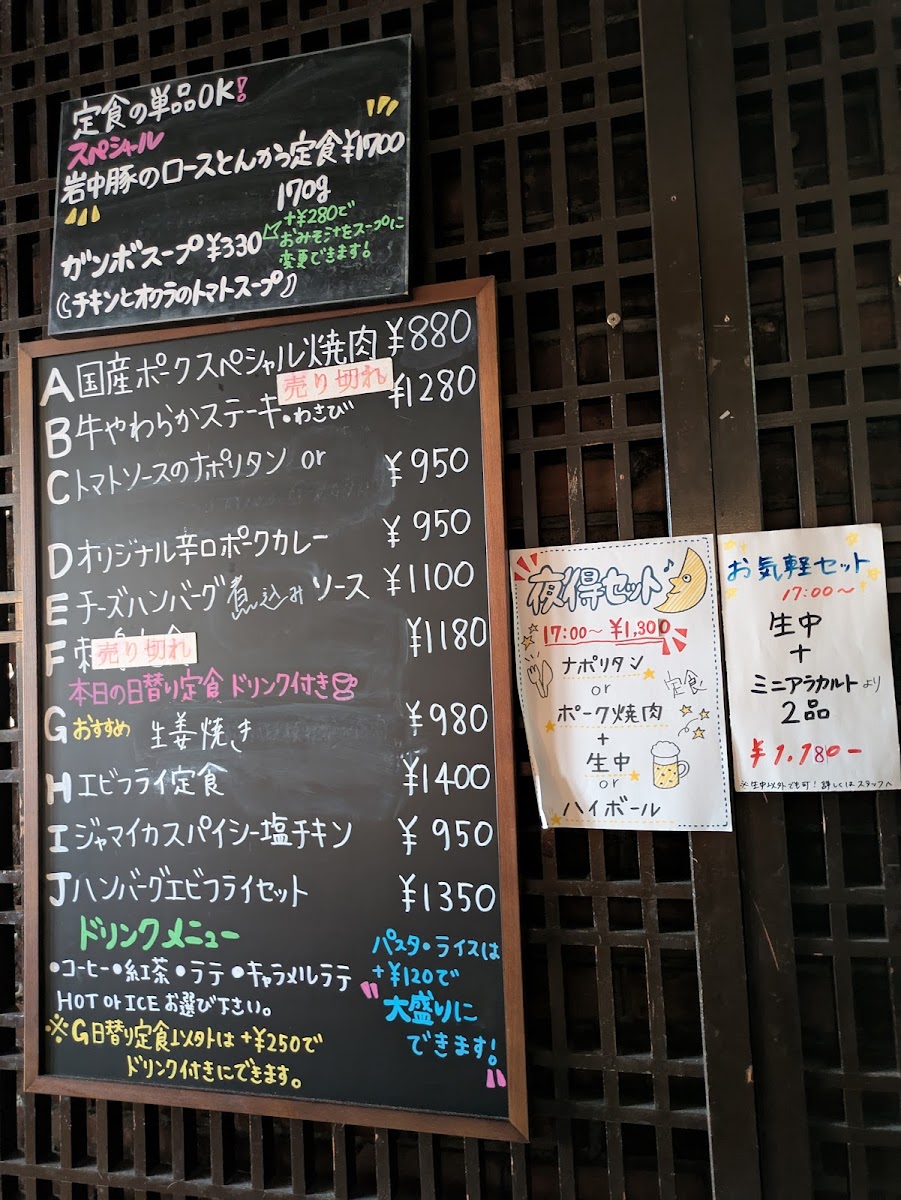 定食の単品OK!
スペシャル
岩中豚のロースとんかつ定食¥1700
170g
ガンボスープ¥330
+¥280で
おみそ汁をスープに
変更できます!
(チキンとオクラのトマトスープ)
A 国産ポークスペシャル焼肉 ¥880
売り切れ
B 牛やわらかステーキ・わさび ¥1280
C トマトソースのナポリタン or ¥950
D オリジナル辛口ポークカレー ¥950
E チーズハンバーグ煮込みソース ¥1100
F ¥1180
売り切れ
本日の日替り定食 ドリンク付き
G おすすめ 生姜焼き ¥980
H エビフライ定食 ¥1400
I ジャマイカスパイシー塩チキン ¥950
J ハンバーグエビフライセット ¥1350
ドリンクメニュー
・コーヒー・紅茶・ラテ・キャラメルラテ
HOT or ICE お選び下さい。
※G日替り定食以外は+¥250で
ドリンク付きにできます。
パスタ・ライスは
+¥120で
大盛りに
できます!
夜得セット
17:00～ ¥1,300
ナポリタン
or
ポーク焼肉
定食
+
生中
or
ハイボール
お気軽セット
17:00～
生中
+
ミニアラカルトより
2品
¥1,180-
※生中以外でも可!詳しくはスタッフへ